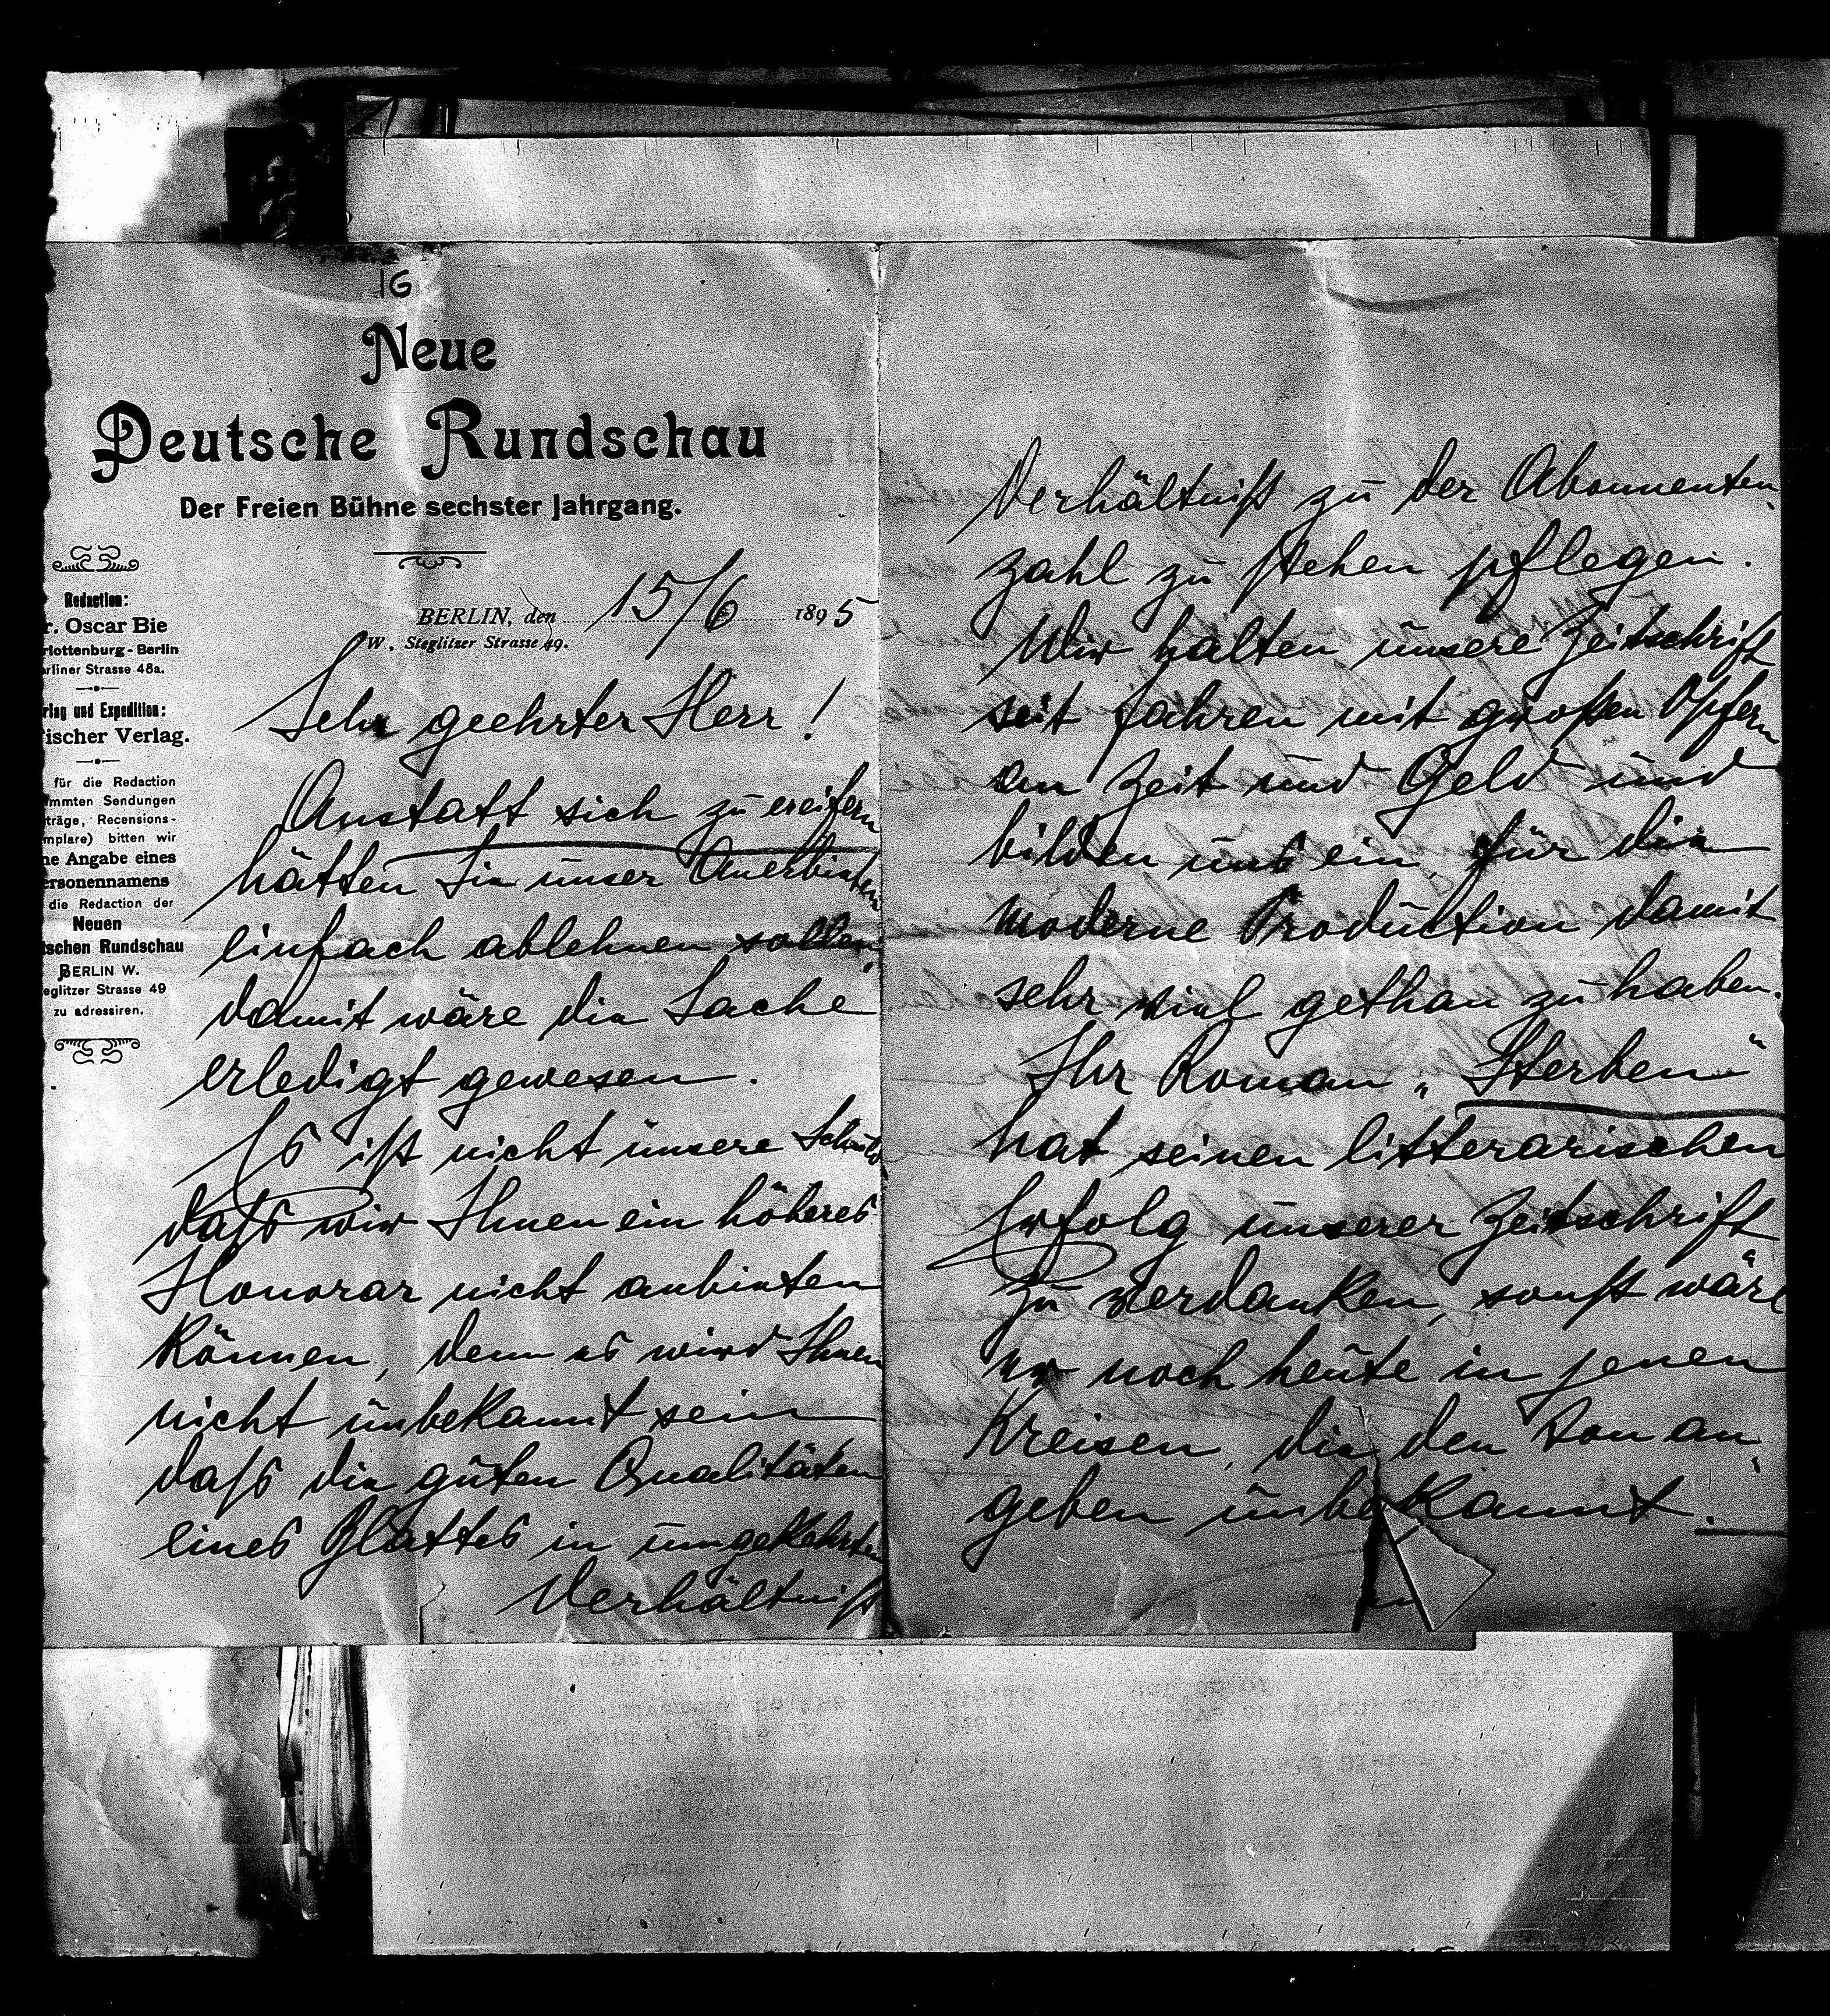 16
Neue
Deutsche Rundschau
Der Freien Bühne sechster Jahrgang.
Redaction:
r. Oscar Bie
rlottenburg - Berlin
rliner Strasse 48a.
rlag und Expedition:
ischer Verlag.
für die Redaction
mmten Sendungen
träge, Recensions-
mplare) bitten wir
ne Angabe eines
ersonennamens
die Redaction der
Neuen
tschen Rundschau
BERLIN W.
eglitzer Strasse 49
zu adressiren.
BERLIN, den 15/6 1895
W., Steglitzer Strasse 49.
Sehr geehrter Herr!
Anstatt sich zu ereifern
hätten Sie unser Anerbieten
einfach ablehnen sollen,
damit wäre die Sache
erledigt gewesen.
Es ist nicht unsere Schuld
daß wir Ihnen ein höheres
Honorar nicht anbieten
können, denn es wird Ihnen
nicht unbekannt sein
daß die guten Qualitäten
eines Blattes in umgekehrten
Verhältnißt
Verhältniß zu der Abonnenten-
zahl zu stehen pflegen.
Wir halten unsere Zeitschrift
seit Jahren mit großen Opfern
an Zeit und Geld und
bilden uns ein, für die
moderne Production damit
sehr viel gethan zu haben.
Ihr Roman „Sterben"
hat seinen litterarischen
Erfolg unserer Zeitschrift
zu verdanken, sonst wäre
er noch heute in jenen
Kreisen, die den Ton an-
geben unbekannt.